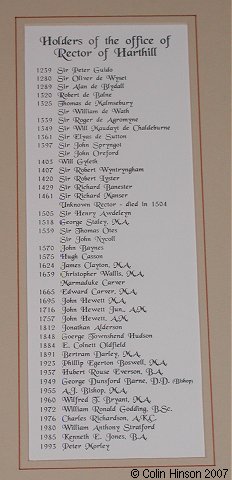 Holders of the office of
Rector of Harthill
1239 Sir Peter Guido
1280 Sir Oliver de Wynet
1289 Sir Alan de Blydall
1320 Robert de Balne
1325 Thomas de Malmsebury
Sir William de Wath
1339 Sir Roger de Agromyne
1349 Sir Will Maudayt de Chaldehurne
1361 Sir Elyas de Sutton
1397 Sir John Spryngoi
Sir John Oreford
1403 Will Gyleth
1407 Sir Robert Wyntryngham
1420 Sir Robert Lyster
1429 Sir Richard Banester
1461 Sir Richard Manser
Unknown Rector - died in 1504
1505 Sir Henry Awdeleyn
1518 George Staley, M.A.
1539 Sir Thomas Otes
Sir John Nycoll
1570 John Baynes
1575 Hugh Casson
1624 James Clayton, M.A.
1639 Christopher Wallis, M.A.
Marmaduke Carver
1665 Edward Carver, M.A.
1695 John Hewitt M.A.
1716 John Hewitt Jun., A.M.
1757 John Hewitt, A.M.
1812 Jonathan Alderson
1848 George Townshend Hudson
1884 E. Colnett Oldfield
1891 Bertram Darley, M.A.
1923 Phillip Egerton Boswell, M.A.
1937 Hubert Rouse Everson, B.A.
1949 George Dunsford Barne, D.D. (Bishop)
1955 A.J. Bishop, M.A.
1960 Wilfred T. Bryant, M.A.
1972 William Ronald Godding, B.Sc.
1976 Charles Richardson, A.K.C.
1980 William Anthony Stratford
1985 Kenneth E. Jones, B.A.
1993 Peter Morley
© Colin Hinson 2007